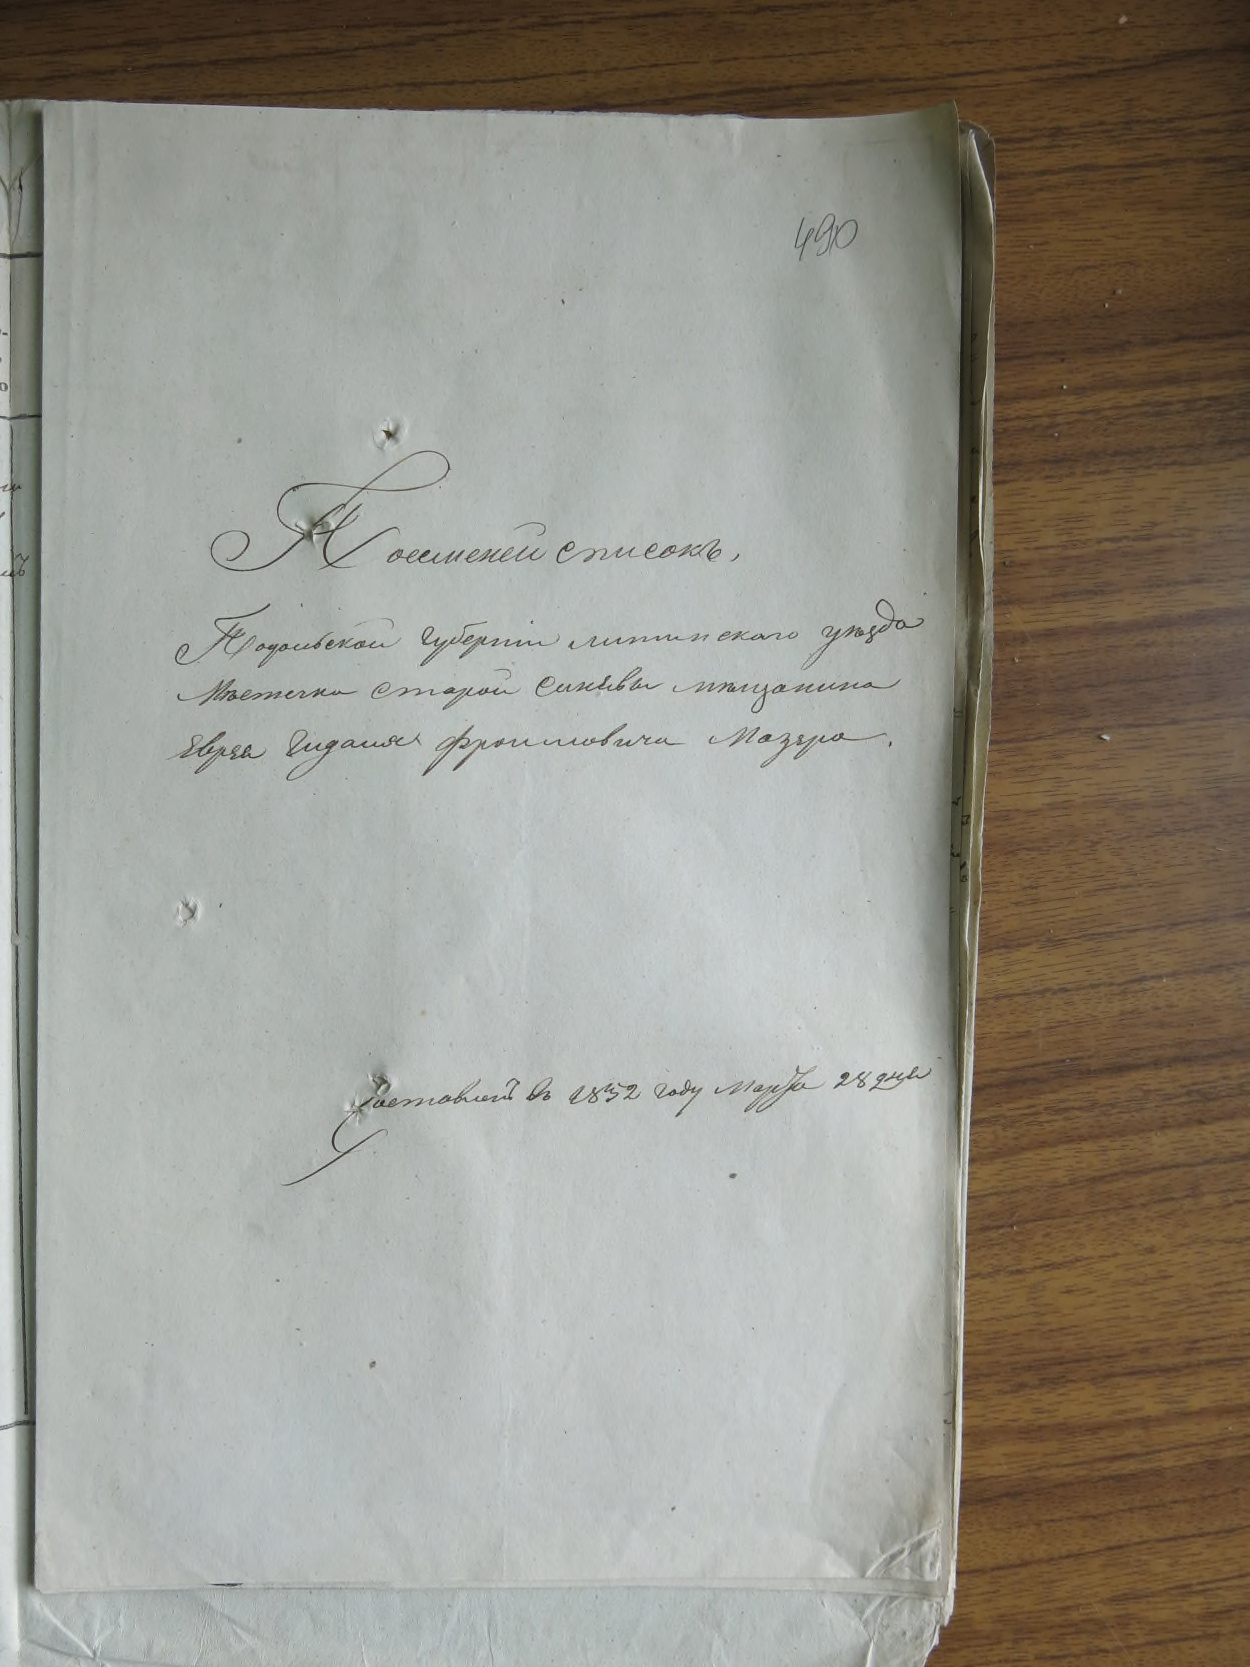 490
Посменей списокъ,
Подольской губерніи литинскаго уезда
Местечка Старой Синявы мещанина
Еврея Гидалия Фроимовича Мазера.
Составленъ въ 1852 году Марта 28 дня